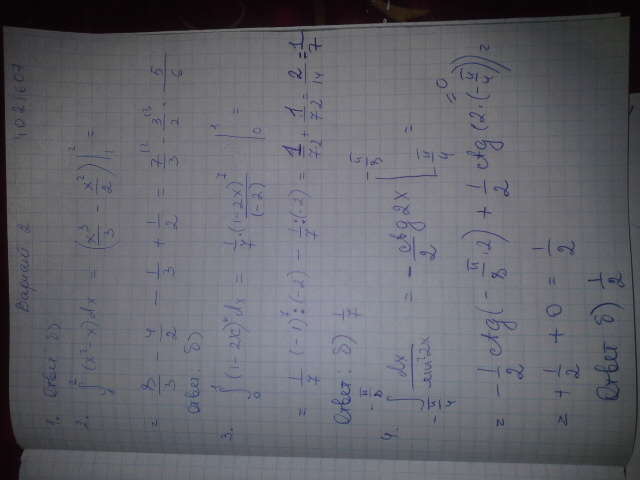 Вариант 2
1. Ответ б)
2. ∫₁² (x² - x) dx = (x³/3 - x²/2) |₁² =
= 8/3 - 4/2 - 1/3 + 1/2 = 7/3 - 3/2 = 5/6
Ответ: б)
3. ∫₀¹ (1-2x)⁶ dx = 1/7 · (1-2x)⁷/(-2) |₀¹ =
= 1/7 (-1)⁷ : (-2) - 1/7 : (-2) = 1/72 + 1/72 = 2/14 = 1/7
Ответ: б) 1/7
4. ∫ dx/sin²2x = - ctg2x/2 | =
-π/8 -π/4 -π/8 -π/4
= -1/2 ctg(-π/8 · 2) + 1/2 ctg(2·(-π/4)) =
= 0
= +1/2 + 0 = 1/2
Ответ б) 1/2